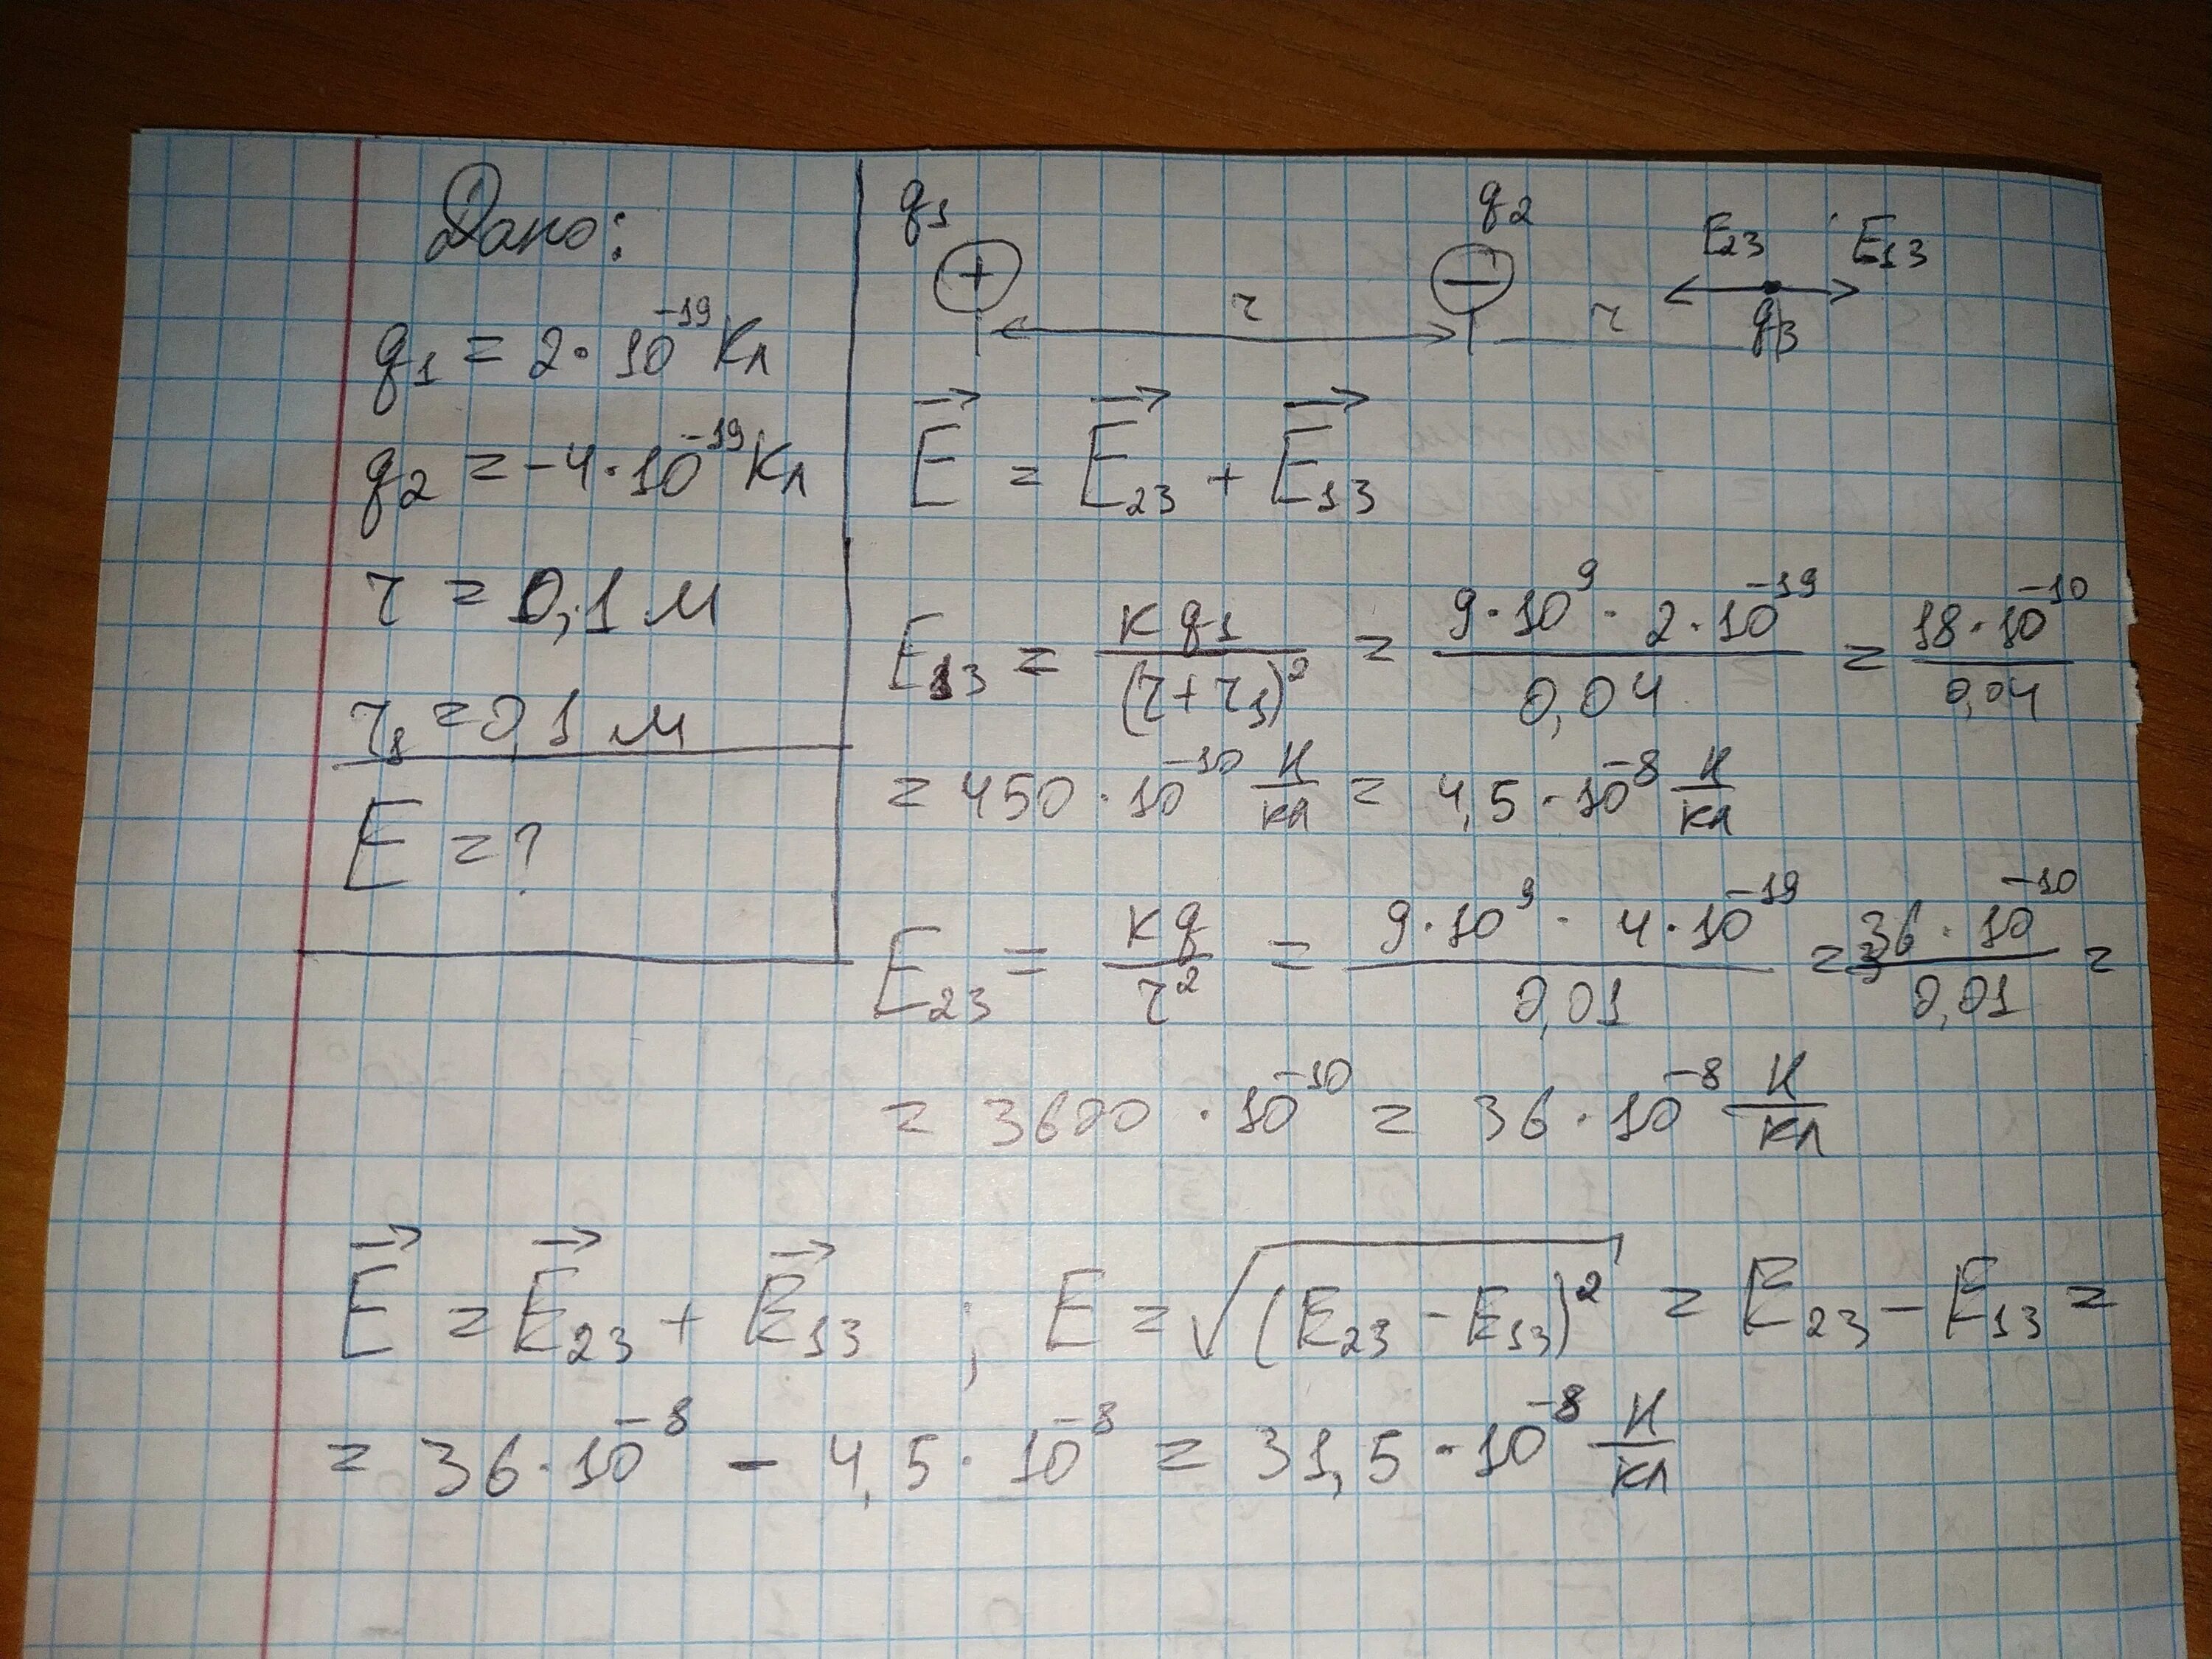 Дано:
q₁ = 2·10⁻¹⁹ Кл
q₂ = -4·10⁻¹⁹ Кл
r = 0,1 м
r₁ = 0,1 м
E = ?
q₁ q₂ E₂₃ E₁₃
+ − r r q₃
E⃗ = E⃗₂₃ + E⃗₁₃
E₁₃ = кq₁/(r+r₁)² = 9·10⁹·2·10⁻¹⁹/0,04 = 18·10⁻¹⁰/0,04
= 450·10⁻¹⁰ Н/кл = 4,5·10⁻⁸ Н/кл
E₂₃ = кq/r² = 9·10⁹·4·10⁻¹⁹/0,01 = 36·10⁻¹⁰/0,01 =
= 3600·10⁻¹⁰ = 36·10⁻⁸ Н/кл
E⃗ = E⃗₂₃ + E⃗₁₃ ; E = √(E₂₃ − E₁₃)² = E₂₃ − E₁₃ =
= 36·10⁻⁸ − 4,5·10⁻⁸ = 31,5·10⁻⁸ Н/кл